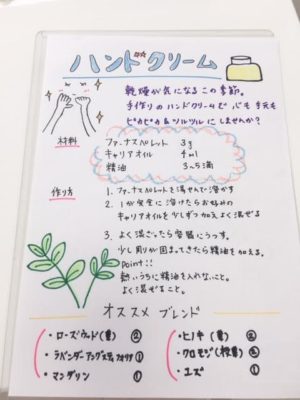 ハンドクリーム
乾燥が気になるこの季節。
手作りのハンドクリームで 心も手元も
ピカピカ&ツルツルにしませんか?
材料
ファーナスペレット 3g
キャリアオイル 4ml
精油 3〜5滴
作り方
1. ファーナスペレットを湯せんで溶かす
2. 1が完全に溶けたらお好みの
キャリアオイルを少しずつ加えよく混ぜる
3. よく混ざったら容器にうつす。
少し周りが固まってきたら精油を加える。
Point!!
熱いうちに精油を入れないこと。
よく混ぜること。
オススメ ブレンド
・ローズウッド(葉) ②
・ラベンダーアングスティフォリア ①
・マンダリン ①
・ヒノキ (葉) ②
・クロモジ(枝葉) ②
・ユズ ①